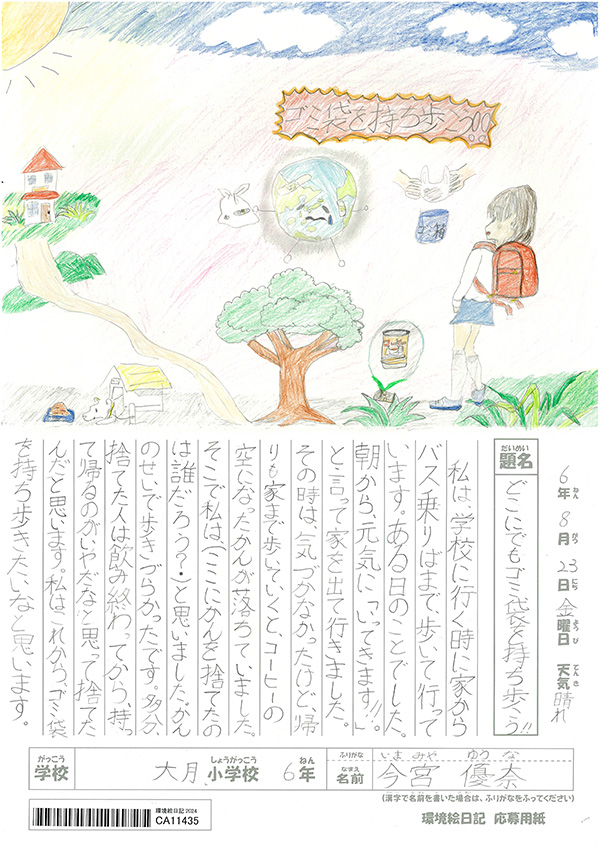 ゴミ袋を持ち歩こう!!
ゴミ箱
コーヒー
6年 8月 23日 金曜日 天気 晴れ
ねん がつ にち ようび てんき
だいめい
題名 どこにでもゴミ袋を持ち歩こう!!
私は、学校に行く時に家から
バス乗りばまで、歩いて行って
います。ある日のことでした。
朝から、元気に「いってきます!!」
と言って家を出て行きました。
その時は、気づかなかったけど、帰
りも家まで歩いていくと、コーヒーの
空になったかんが落ちていました。
そこで私は、(ここにかんを捨てたの
は誰だろう?・)と思いました。かん
のせいで歩きづらかったです。多分、
捨てた人は飲み終わってから、持っ
て帰るのがいやだなと思って捨てた
んだと思います。私はこれから、ゴミ袋
を持ち歩きたいなと思います。
がっこう しょうがっこう ねん ふりがな いまみや ゆうな
学校 大月 小学校 6年 なまえ 名前 今宮 優奈
(漢字で名前を書いた場合は、ふりがなをふってください)
環境絵日記 2024
CA11435
環境絵日記 応募用紙